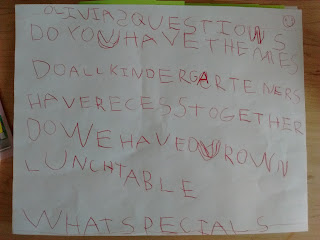 OLIVIASQUESTIONS
DOYOUHAVETHEMES
DOALLKINDERGARTENERS
HAVERECESSTOGETHER
DOWEHAVEOUROWN
LUNCHTABLE
WHATSPECIALS